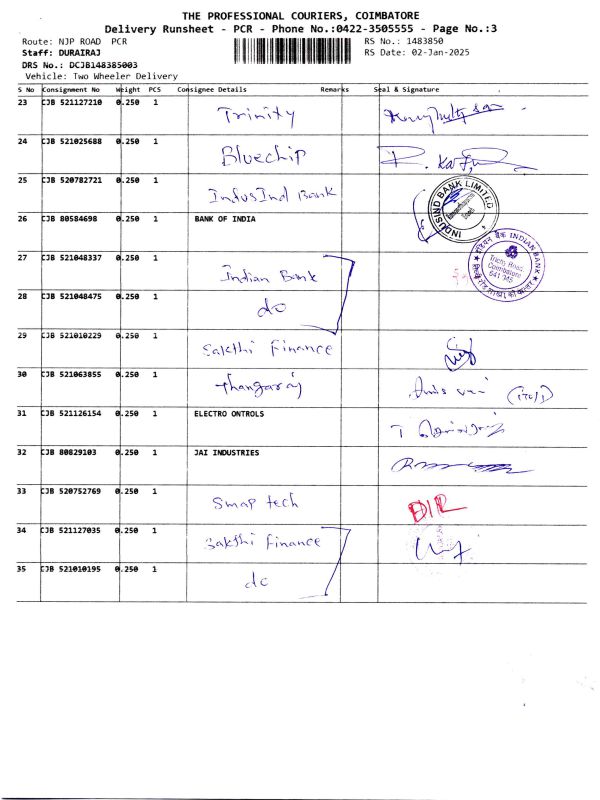 THE PROFESSIONAL COURIERS, COIMBATORE
Delivery Runsheet - PCR - Phone No.:0422-3505555 - Page No.:3
Route: NJP ROAD PCR RS No.: 1483850
Staff: DURAIRAJ RS Date: 02-Jan-2025
DRS No.: DCJB148385003
Vehicle: Two Wheeler Delivery
S No Consignment No Weight PCS Consignee Details Remarks Seal & Signature
23 CJB 521127210 0.250 1 Trinity
24 CJB 521025688 0.250 1 Bluechip
25 CJB 520782721 0.250 1 IndusInd Bank INDUSIND BANK LIMITED
26 CJB 80584698 0.250 1 BANK OF INDIA
27 CJB 521048337 0.250 1 Indian Bank INDIAN BANK Trichy Road, Coimbatore
28 CJB 521048475 0.250 1 do
29 CJB 521010229 0.250 1 Sakthi Finance
30 CJB 521063855 0.250 1 Thangaraj
31 CJB 521126154 0.250 1 ELECTRO ONTROLS
32 CJB 80829103 0.250 1 JAI INDUSTRIES
33 CJB 520752769 0.250 1 Smap tech D/R
34 CJB 521127035 0.250 1 Sakthi Finance
35 CJB 521010195 0.250 1 do